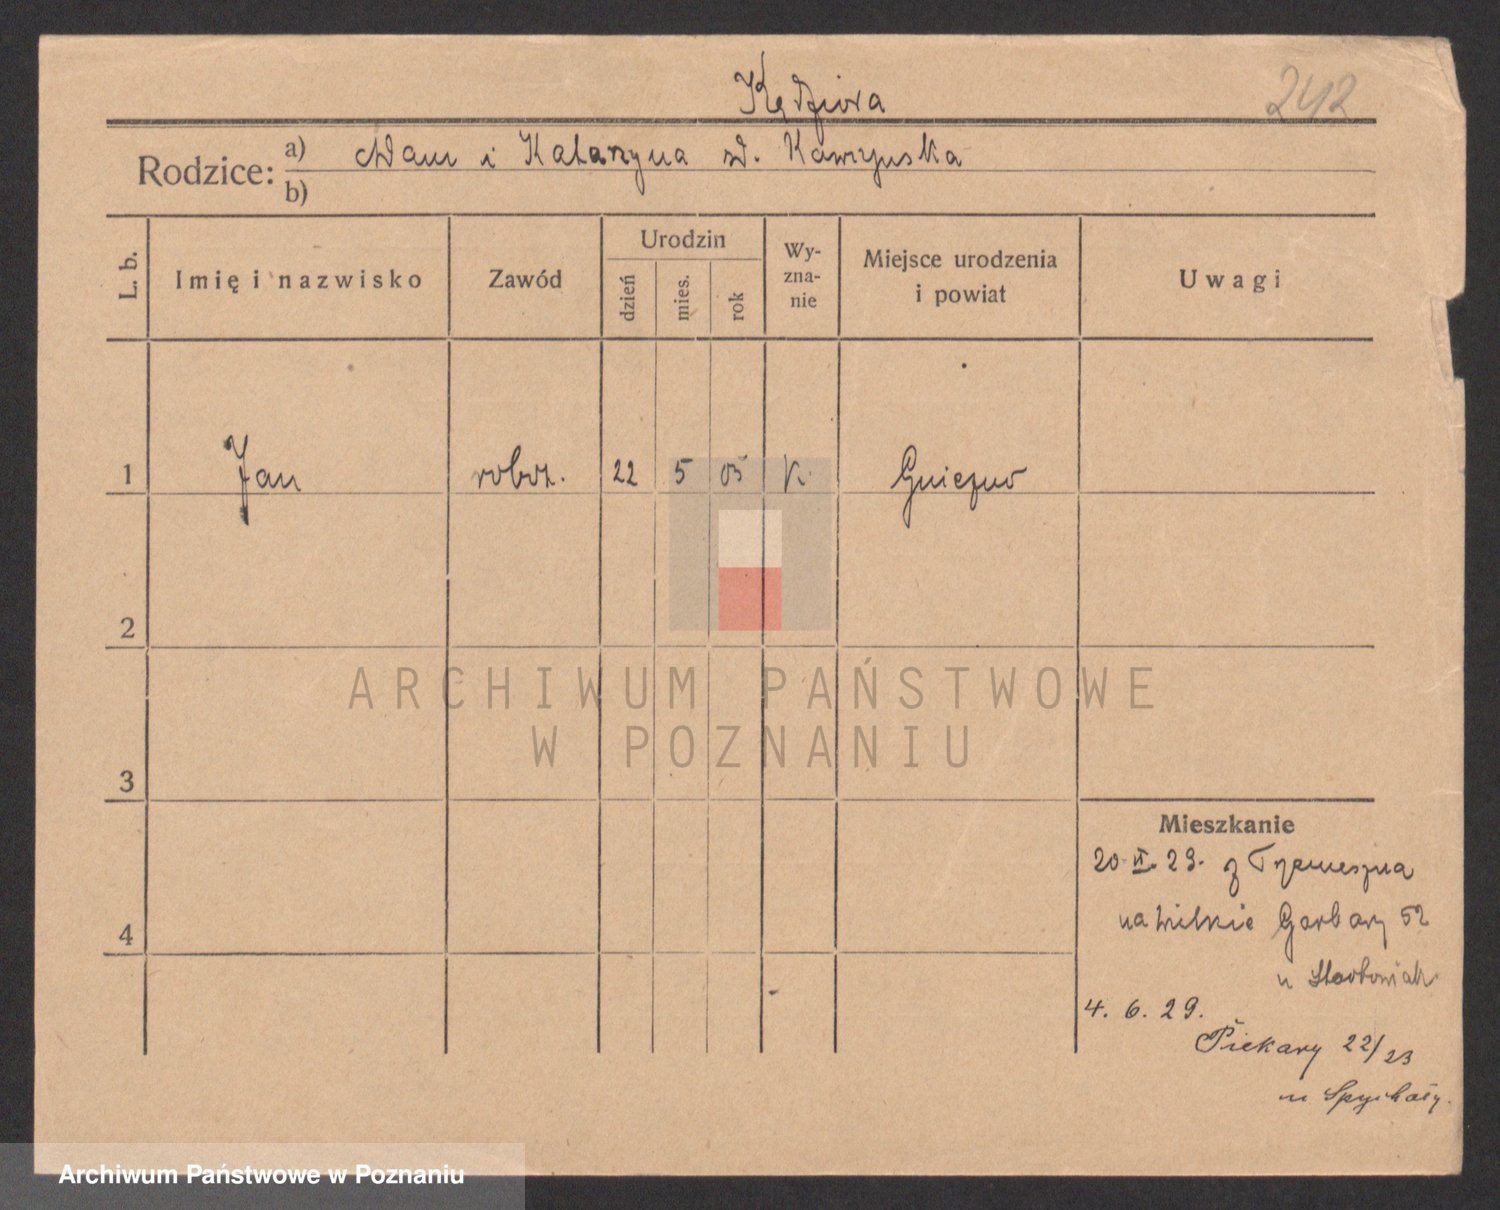 Kędziora
242
Rodzice: a) Adam i Katarzyna zd. Kawczyńska
b)
L. b.
Imię i nazwisko
Zawód
Urodzin
dzień
mies.
rok
Wy-
zna-
nie
Miejsce urodzenia
i powiat
Uwagi
1 Jan roboz. 22 5 05 k. Gniezno
2
3
4
Mieszkanie
20. VI. 29. z Trzemeszna
na Wielkie Garbary 52
u
4. 6. 29.
Piekary 22/23
u Spychały.
ARCHIWUM PAŃSTWOWE
W POZNANIU
Archiwum Państwowe w Poznaniu